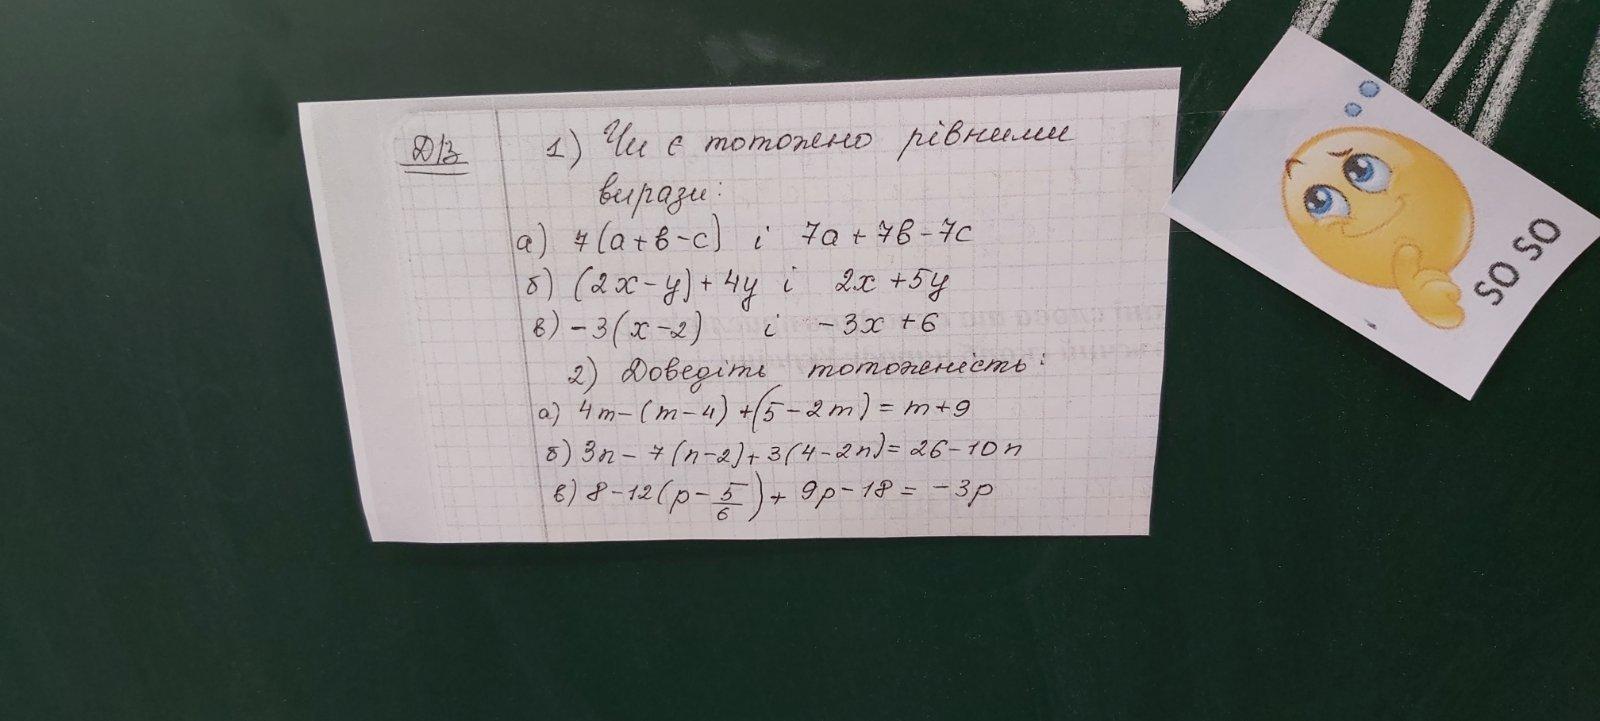 Д/З
1) Чи є тотожно рівними
вирази:
а) 7(a+b-c) і 7a+7b-7c
б) (2x-y)+4y і 2x+5y
в) -3(x-2) і -3x+6
2) Доведіть тотожність:
а) 4m-(m-4)+(5-2m)=m+9
б) 3n-7(n-2)+3(4-2n)=26-10n
в) 8-12(p-5/6)+9p-18=-3p
SO SO